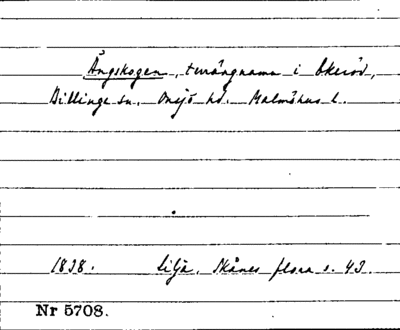 Ängskogen, terrängnamn i Ekeröd,
Billinge sn. Onsjö hd. Malmöhus l.
1838. Lilja. Skånes flora s. 43.
Nr 5708.